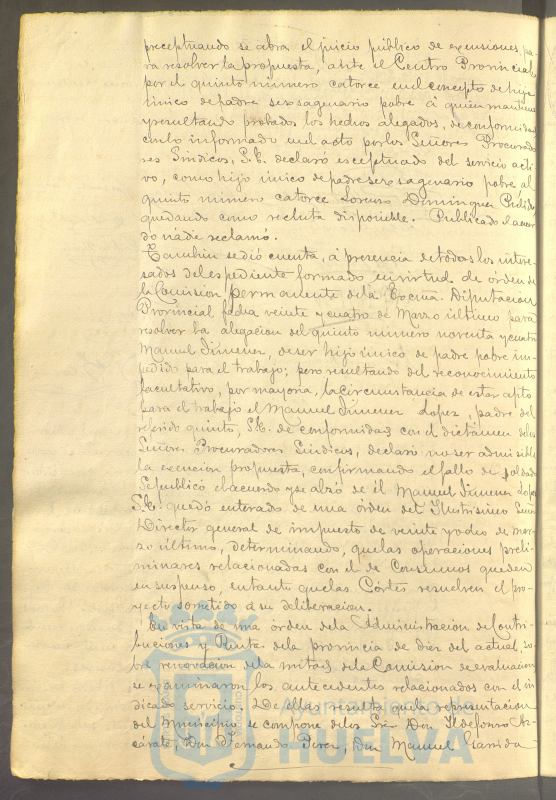 preceptuando se abra el juicio público de exensiones, pa-
ra resolver la propuesta, ante el Centro Provincial
por el quinto número catorce en el concepto de hijo
único de padre sexsagenario pobre á quien mantiene
y resultando probados los hechos alegados, de conformidad
con lo informado en el acto por los Señores Procurado-
res Síndicos, S.E. declaró esceptuado del servicio acti-
vo, como hijo único de padre sexsagenario pobre, al
quinto número catorce Lorenzo Dominguez
quedando como recluta disponible. Publicado el acuer-
do nadie reclamó.
Tambien se dió cuenta, á presencia de todos los intere-
sados del espediente formado en virtud de órden de
la Comision permanente de la Excma. Diputacion
Provincial fecha veinte y cuatro de Marzo último para
resolver la alegacion del quinto número noventa y cuatro
Manuel Jimenez, de ser hijo único de padre pobre im-
pedido para el trabajo; pero resultando del reconocimiento
facultativo, por mayoria, la circunstancia de estar apto
para el trabajo el Manuel Jimenez Lopez, padre del
referido quinto, S.E. de conformidad con el dictámen de los
Señores Procuradores Síndicos, declaró no ser admisible
la exencion propuesta, confirmando el fallo de soldado
Se publicó el acuerdo y se alzó de él Manuel Jimenez Lopez
S.E. quedó enterado de una órden del Ilustrisimo Señor
Director general de impuesto de veinte y ocho de mar-
zo último, determinando, que las operaciones preli-
minares relacionadas con el de Consumos queden
en suspenso, en tanto que las Córtes resuelven el pro-
yecto sometido á su deliberacion.
En vista de una órden de la Administracion de Contri-
buciones y Renta de la provincia de diez del actual, so-
bre renovacion de la mitad de la Comision de evaluacion
se examinaron los antecedentes relacionados con el in-
dicado servicio. De ellas resulta que la representacion
del Municipio se compone de los Sres. Don Ildefonso Az-
cárate, Don Fernando Perez, Don Manuel Garrido
Ayuntamiento de
HUELVA